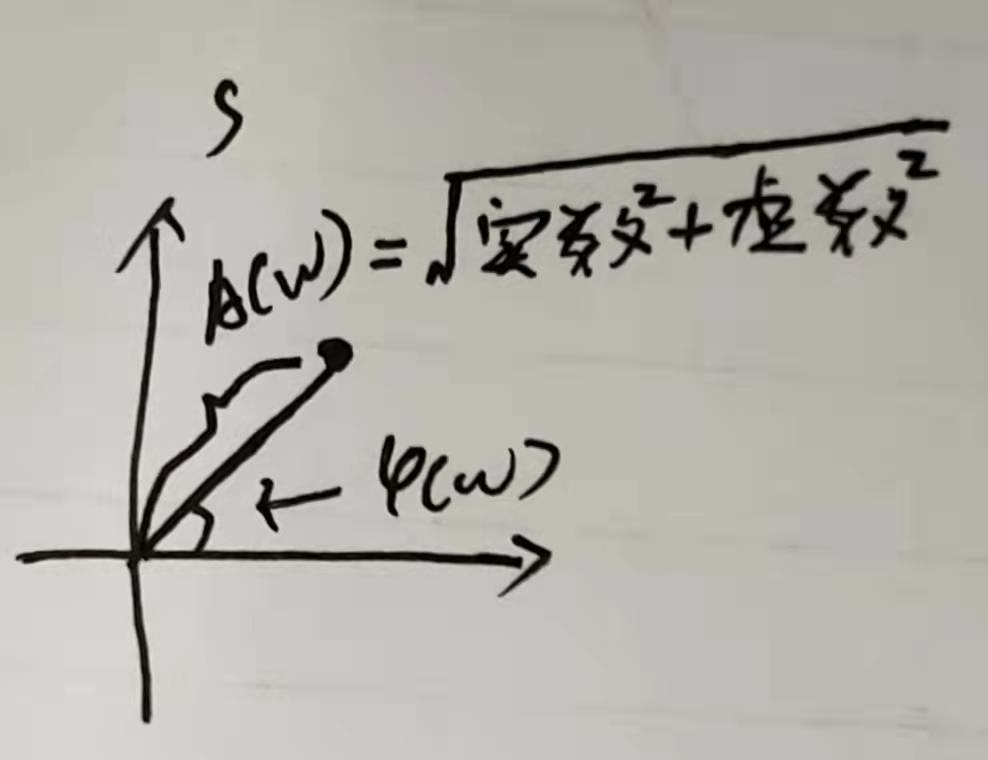 S
A(ω) = √实数²+虚数²
φ(ω)